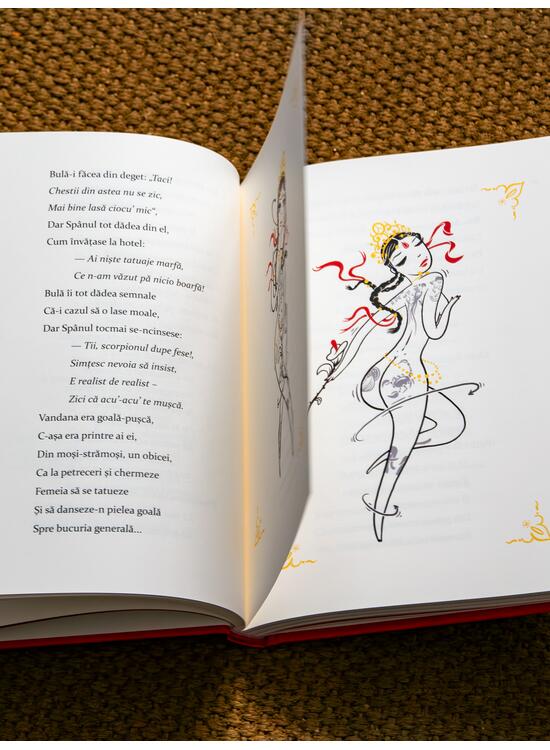 Bulă-i făcea din deget: „Taci!
Chestii din astea nu se zic,
Mai bine lasă ciocu’ mic“,
Dar Spânul tot dădea din el,
Cum învățase la hotel:
— Ai niște tatuaje marfă,
Ce n-am văzut pă nicio boarfă!
Bulă îi tot dădea semnale
Că-i cazul să o lase moale,
Dar Spânul tocmai se-ncinsese:
— Tii, scorpionul dupe fese!,
Simțesc nevoia să insist,
E realist de realist –
Zici că acu’-acu’ te mușcă.
Vandana era goală-pușcă,
C-așa era printre ai ei,
Din moși-strămoși, un obicei,
Ca la petreceri și chermeze
Femeia să se tatueze
Și să danseze-n pielea goală
Spre bucuria generală...